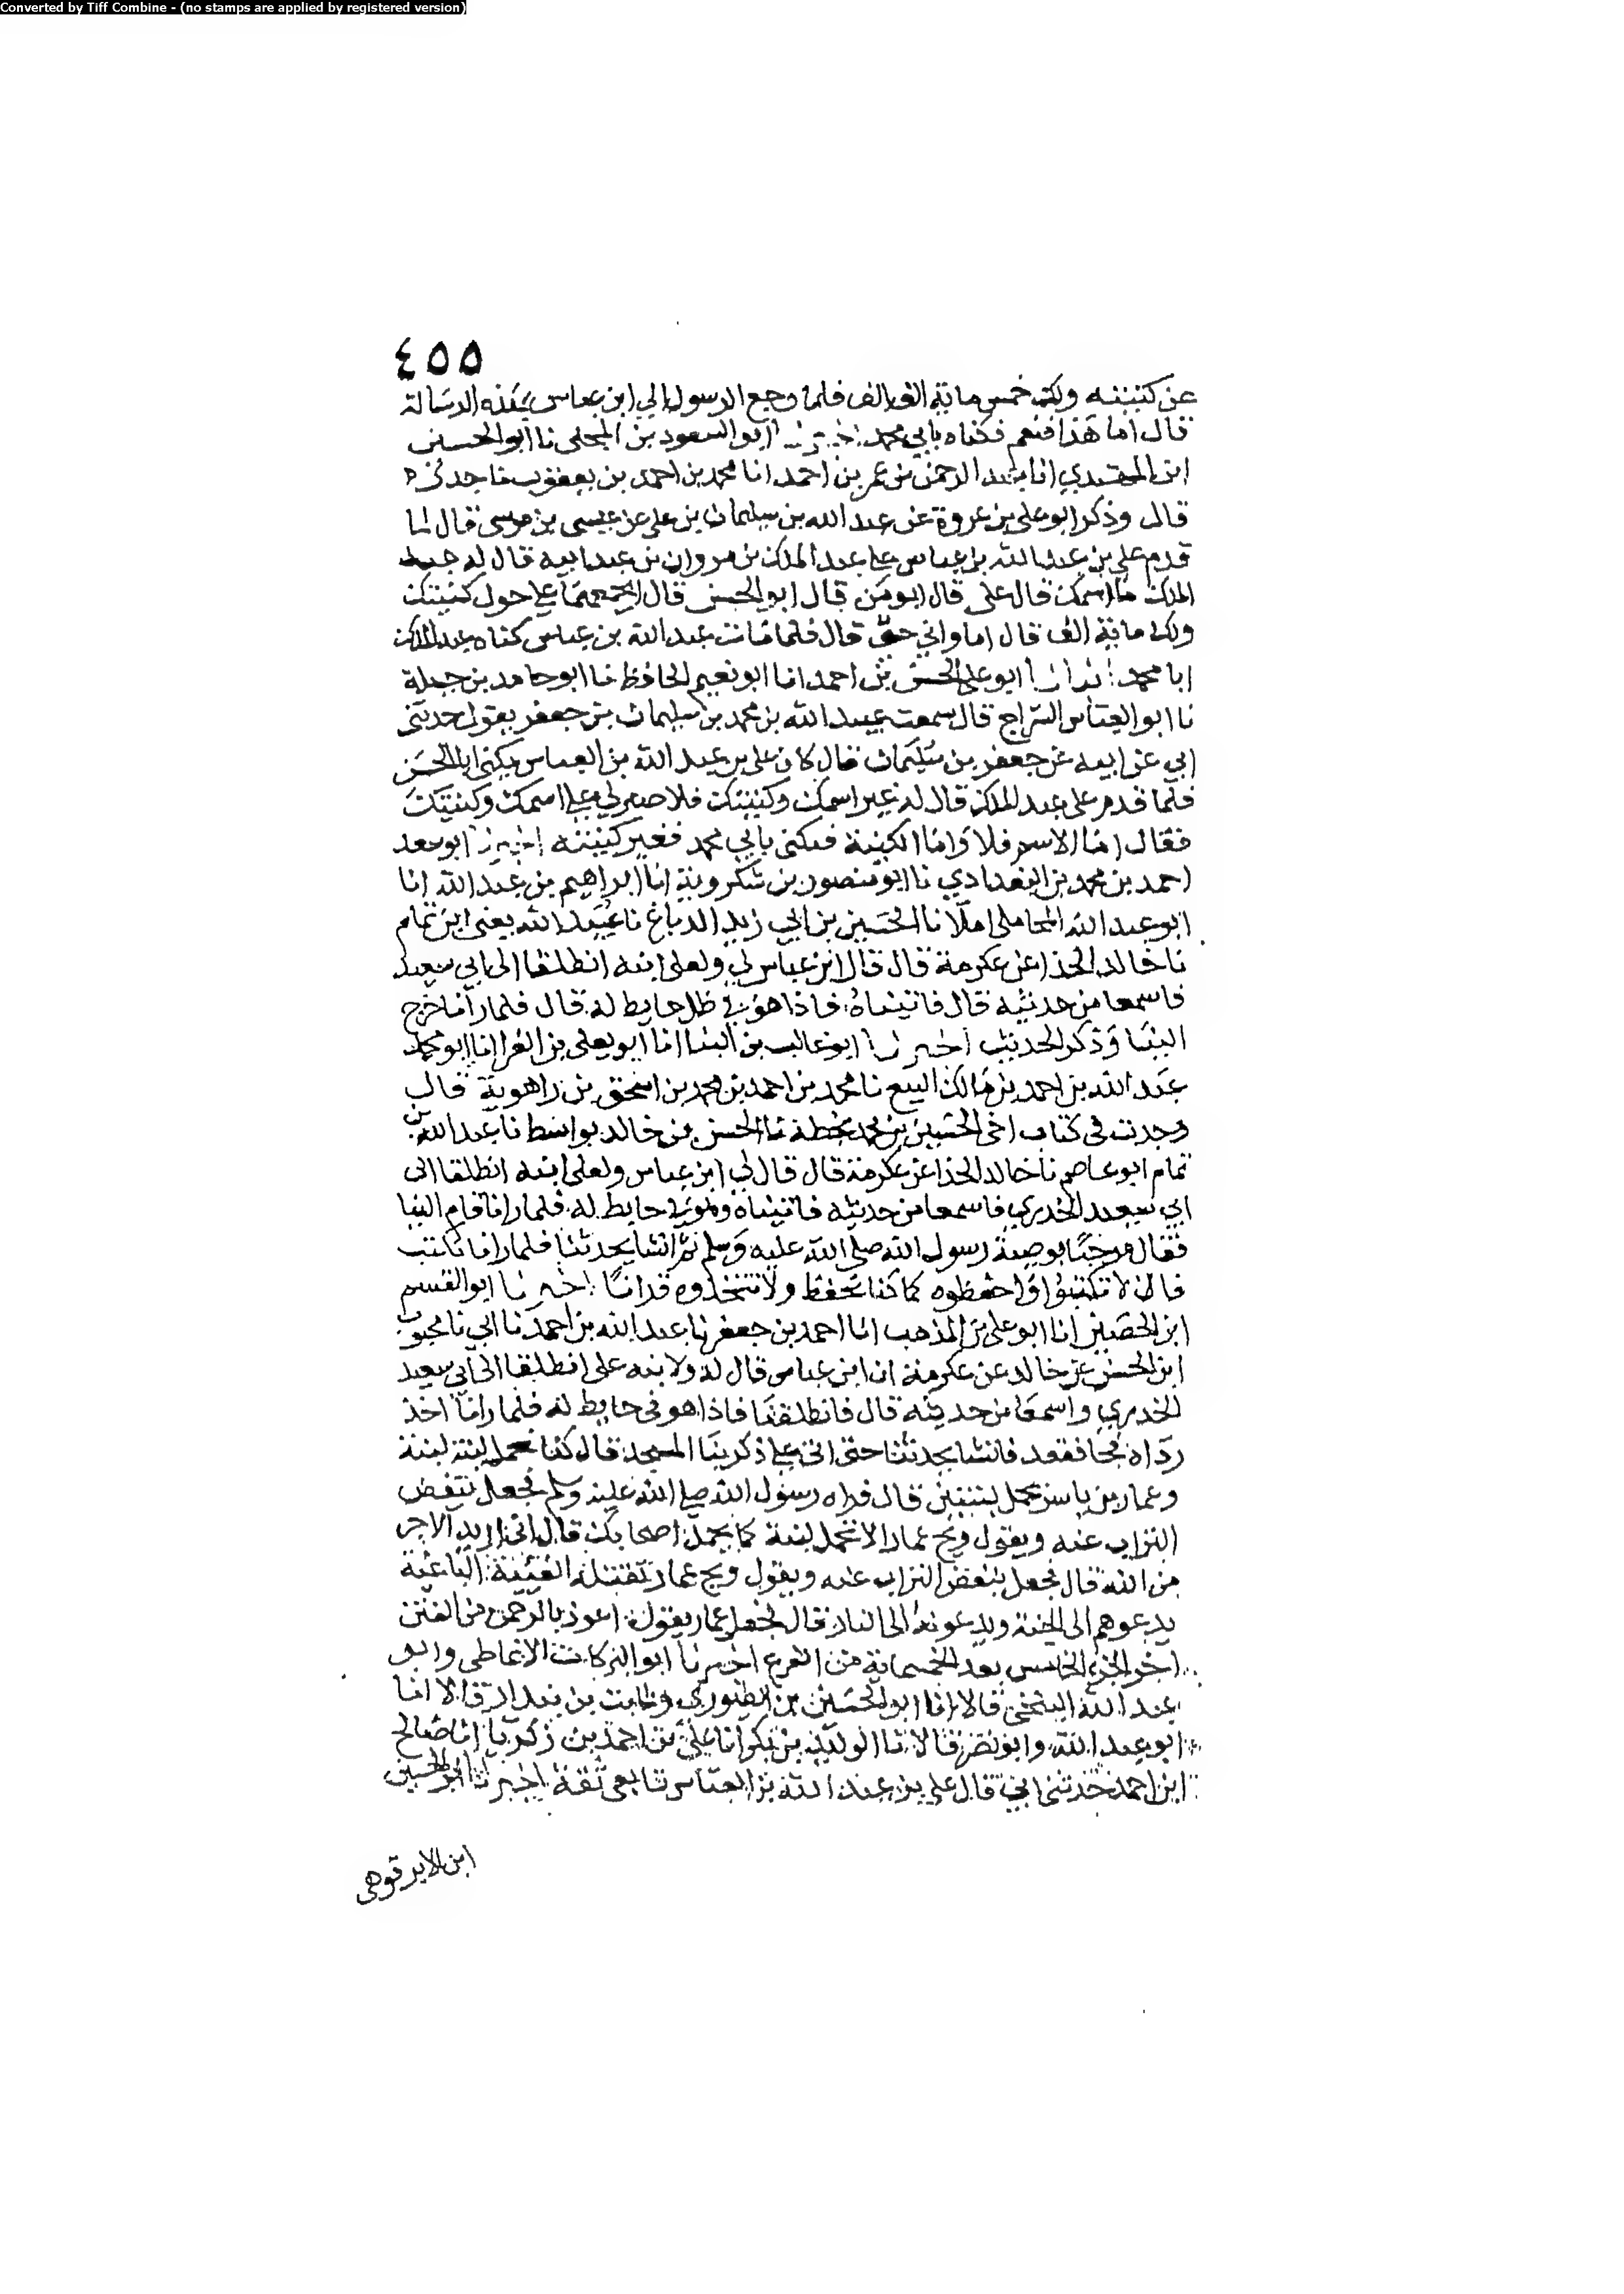 Converted by Tiff Combine - (no stamps are applied by registered version)
٤٥٥
عن كنيته ولك خمس ماية الف الف فلما رجع الرسول الي ابن عباس بهذه الرسالة
قال اما هذا فنعم فكناه بابي محمد اخبرنا ابو السعود بن المجلى نا ابو الحسين
ابن المهتدي انا عبد الرحمن بن عمر بن احمد انا محمد بن احمد بن يعقوب نا جدي
قال وذكر ابو علي بن عروة عن عبد الله بن سليمان بن علي عن عيسى بن موسى قال لما
قدم علي بن عبد الله بن عباس على عبد الملك بن مروان من عند ابيه قال له عبد
الملك ما اسمك قال علي قال ابو من قال ابو الحسن قال اجمعتهما علي حول كنيتك
ولك ماية الف قال اما وابي حي قال فلما مات عبد الله بن عباس كناه عبد الملك
ابا محمد انبانا ابو علي الحسن بن احمد انا ابو نعيم الحافظ نا ابو حامد بن جبلة
نا ابو العباس السراج قال سمعت عبيد الله بن محمد بن سليمان بن جعفر يقول حدثني
ابي عن ابيه عن جعفر بن سليمان قال كان علي بن عبد الله بن العباس يكنى ابا الحسن
فلما قدم على عبد الملك قال له غير اسمك وكنيتك فلا صبر لي علي اسمك وكنيتك
فقال اما الاسم فلا واما الكنية فتكنى بابي محمد فغير كنيته اخبرنا ابو سعد
احمد بن محمد بن البغدادي نا ابو منصور بن شكروية انا ابراهيم بن عبد الله انا
ابو عبد الله المحاملي املا نا الحسين بن ابي زيد الدباغ نا عبيد الله يعني ابن تمام
نا خالد الحذا عن عكرمة قال قال ابن عباس لي ولعلي ابنه انطلقا الى ابي سعيد
فاسمعا من حديثه قال فاتيناه فاذا هو في ظل حايط له قال فلما رآنا خرج
الينا وذكر الحديث اخبرنا ابو غالب بن البنا انا ابو يعلى بن الفرا انا ابو محمد
عبد الله بن احمد بن مالك البيع نا محمد بن احمد بن محمد بن اسحق بن راهوية قال
وجدت في كتاب اخي الحسين بن محمد بخطه نا الحسن بن خالد بواسط نا عبد الله بن
تمام ابو عاصم نا خالد الحذا عن عكرمة قال قال لي ابن عباس ولعلي ابنه انطلقا الى
ابي سعيد الخدري فاسمعا من حديثه فاتيناه وهو في حايط له فلما رانا قام الينا
فقال مرحبا بوصية رسول الله صلى الله عليه وسلم ثم انشا يحدثنا فلما رانا نكتب
قال لا تكتبوا واحفظوه كما كنا نحفظ ولا تتخذوه قرانا اخبرنا ابو القسم
ابن الحصين انا ابو علي بن المذهب انا احمد بن جعفر نا عبد الله بن احمد نا ابي نا محبوب
ابن الحسن عن خالد عن عكرمة ان ابن عباس قال له ولابنه علي انطلقا الى ابي سعيد
الخدري واسمعا من حديثه قال فانطلقنا فاذا هو في حايط له فلما رانا اخذ
رداه فجا فقعد فانشا يحدثنا حتى اتى علي ذكر بنا المسجد قال كنا نحمل لبنة لبنة
وعمار بن ياسر يحمل لبنتين قال فراه رسول الله صلى الله عليه وسلم فجعل ينفض
التراب عنه ويقول ويح عمار الا تحمل لبنة كما يحمل اصحابك قال اني اريد الاجر
من الله قال فجعل ينفض التراب عنه ويقول ويح عمار تقتله الفئة الباغية
يدعوهم الى الجنة ويدعونه الى النار قال فجعل عمار يقول اعوذ بالرحمن من الفتن
اخر الجزء الخامس بعد الخمسماية من الفرع اخبرنا ابو البركات الانماطي وابو
عبد الله البلخي قالا انا ابو الحسين بن الطيوري وثابت بن بندار قالا انا
ابو عبد الله وابو نصر قالا نا الوليد بن بكر انا علي بن احمد بن زكريا انا صالح
ابن احمد حدثني ابي قال علي بن عبد الله بن العباس تابعي ثقة اخبرنا ابو الحسين
ابن الابرقوهي